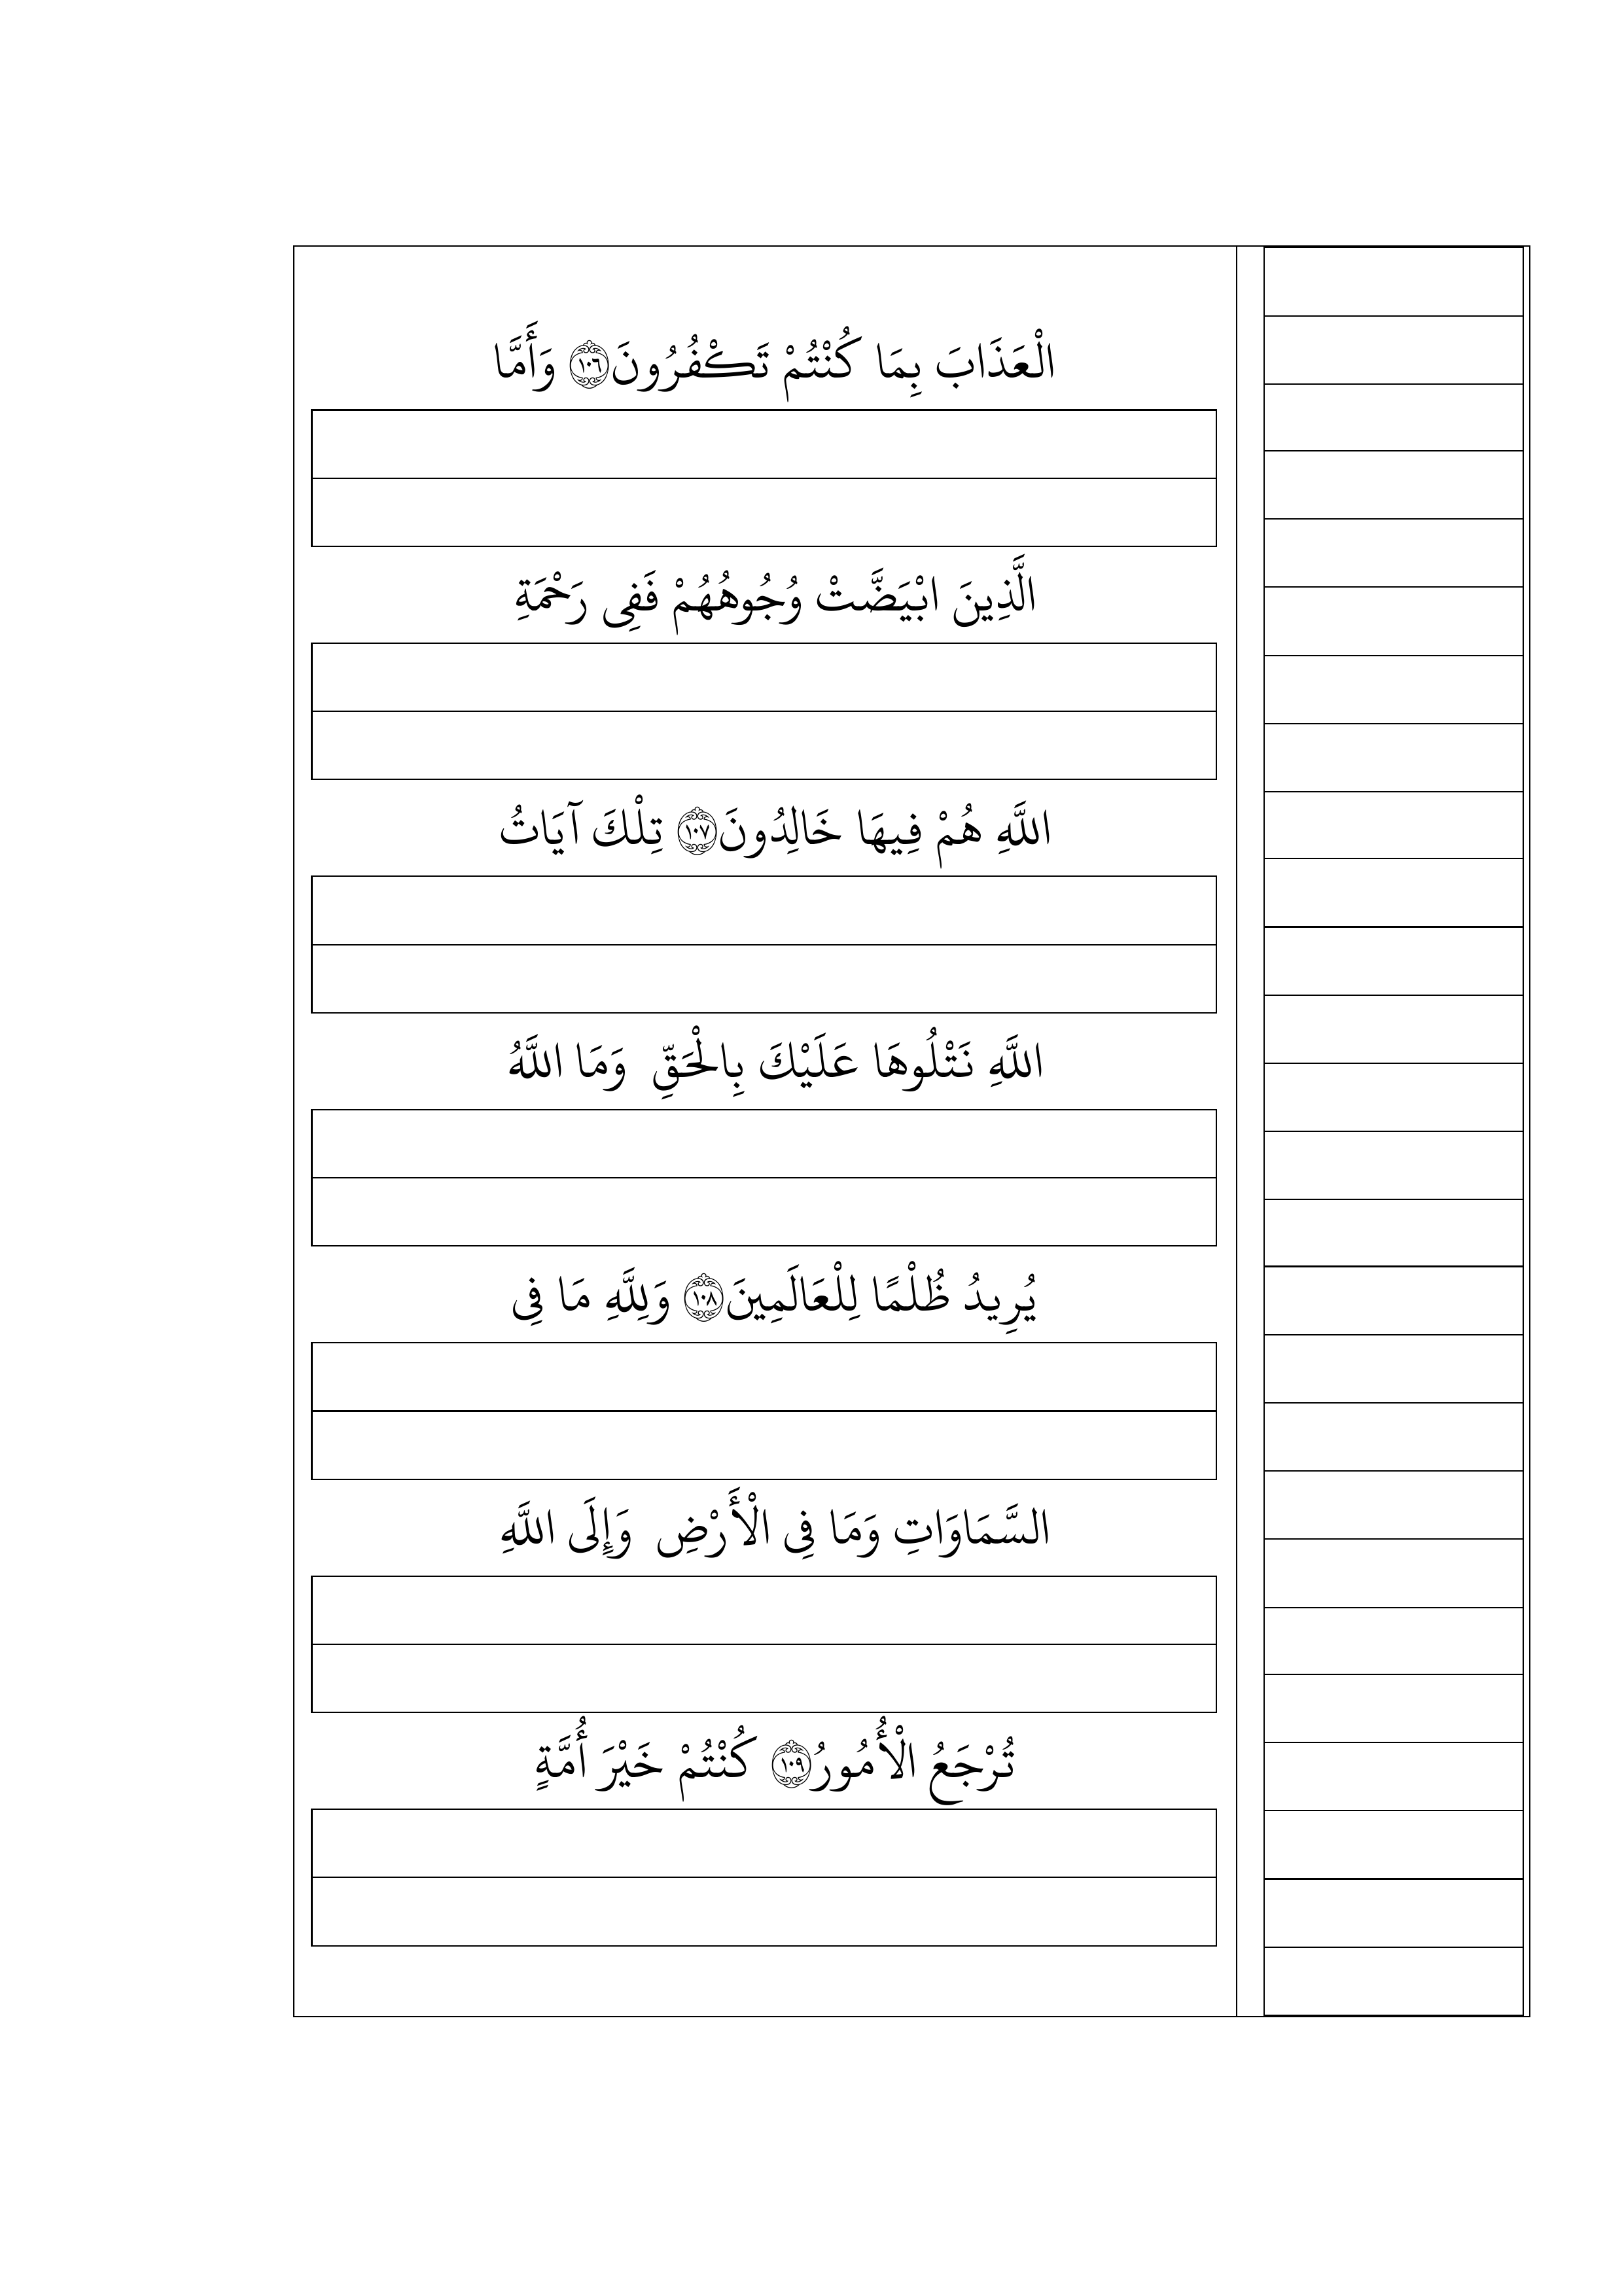 الْعَذَابَ بِمَا كُنْتُمْ تَكْفُرُونَ ﴿١٠٦﴾ وَأَمَّا
الَّذِينَ ابْيَضَّتْ وُجُوهُهُمْ فَفِى رَحْمَةِ
اللَّهِ هُمْ فِيهَا خَالِدُونَ ﴿١٠٧﴾ تِلْكَ آيَاتُ
اللَّهِ نَتْلُوهَا عَلَيْكَ بِالْحَقِّ وَمَا اللَّهُ
يُرِيدُ ظُلْمًا لِلْعَالَمِينَ ﴿١٠٨﴾ وَلِلَّهِ مَا فِى
السَّمَاوَاتِ وَمَا فِى الْأَرْضِ وَإِلَى اللَّهِ
تُرْجَعُ الْأُمُورُ ﴿١٠٩﴾ كُنْتُمْ خَيْرَ أُمَّةٍ